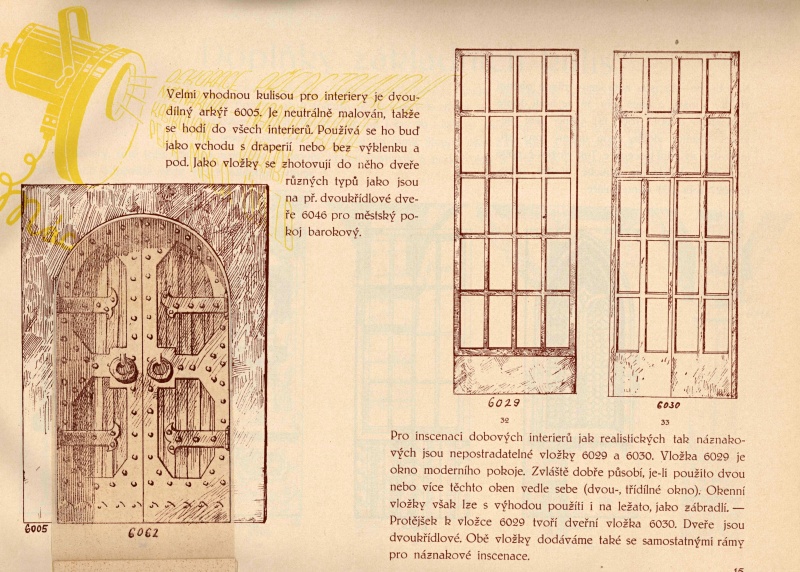 Velmi vhodnou kulisou pro interiery je dvou-
dílný arkýř 6005. Je neutrálně malován, takže
se hodí do všech interierů. Používá se ho buď
jako vchodu s draperií nebo bez výklenku a
pod. Jako vložky se zhotovují do něho dveře
různých typů jako jsou
na př. dvoukřídlové dve-
ře 6046 pro městský po-
koj barokový.
6005
6062
6029
32
6030
33
Pro inscenaci dobových interierů jak realistických tak náznako-
vých jsou nepostradatelné vložky 6029 a 6030. Vložka 6029 je
okno moderního pokoje. Zvláště dobře působí, je-li použito dvou
nebo více těchto oken vedle sebe (dvou-, třídílné okno). Okenní
vložky však lze s výhodou použíti i na ležato, jako zábradlí. —
Protějšek k vložce 6029 tvoří dveřní vložka 6030. Dveře jsou
dvoukřídlové. Obě vložky dodáváme také se samostatnými rámy
pro náznakové inscenace.
15